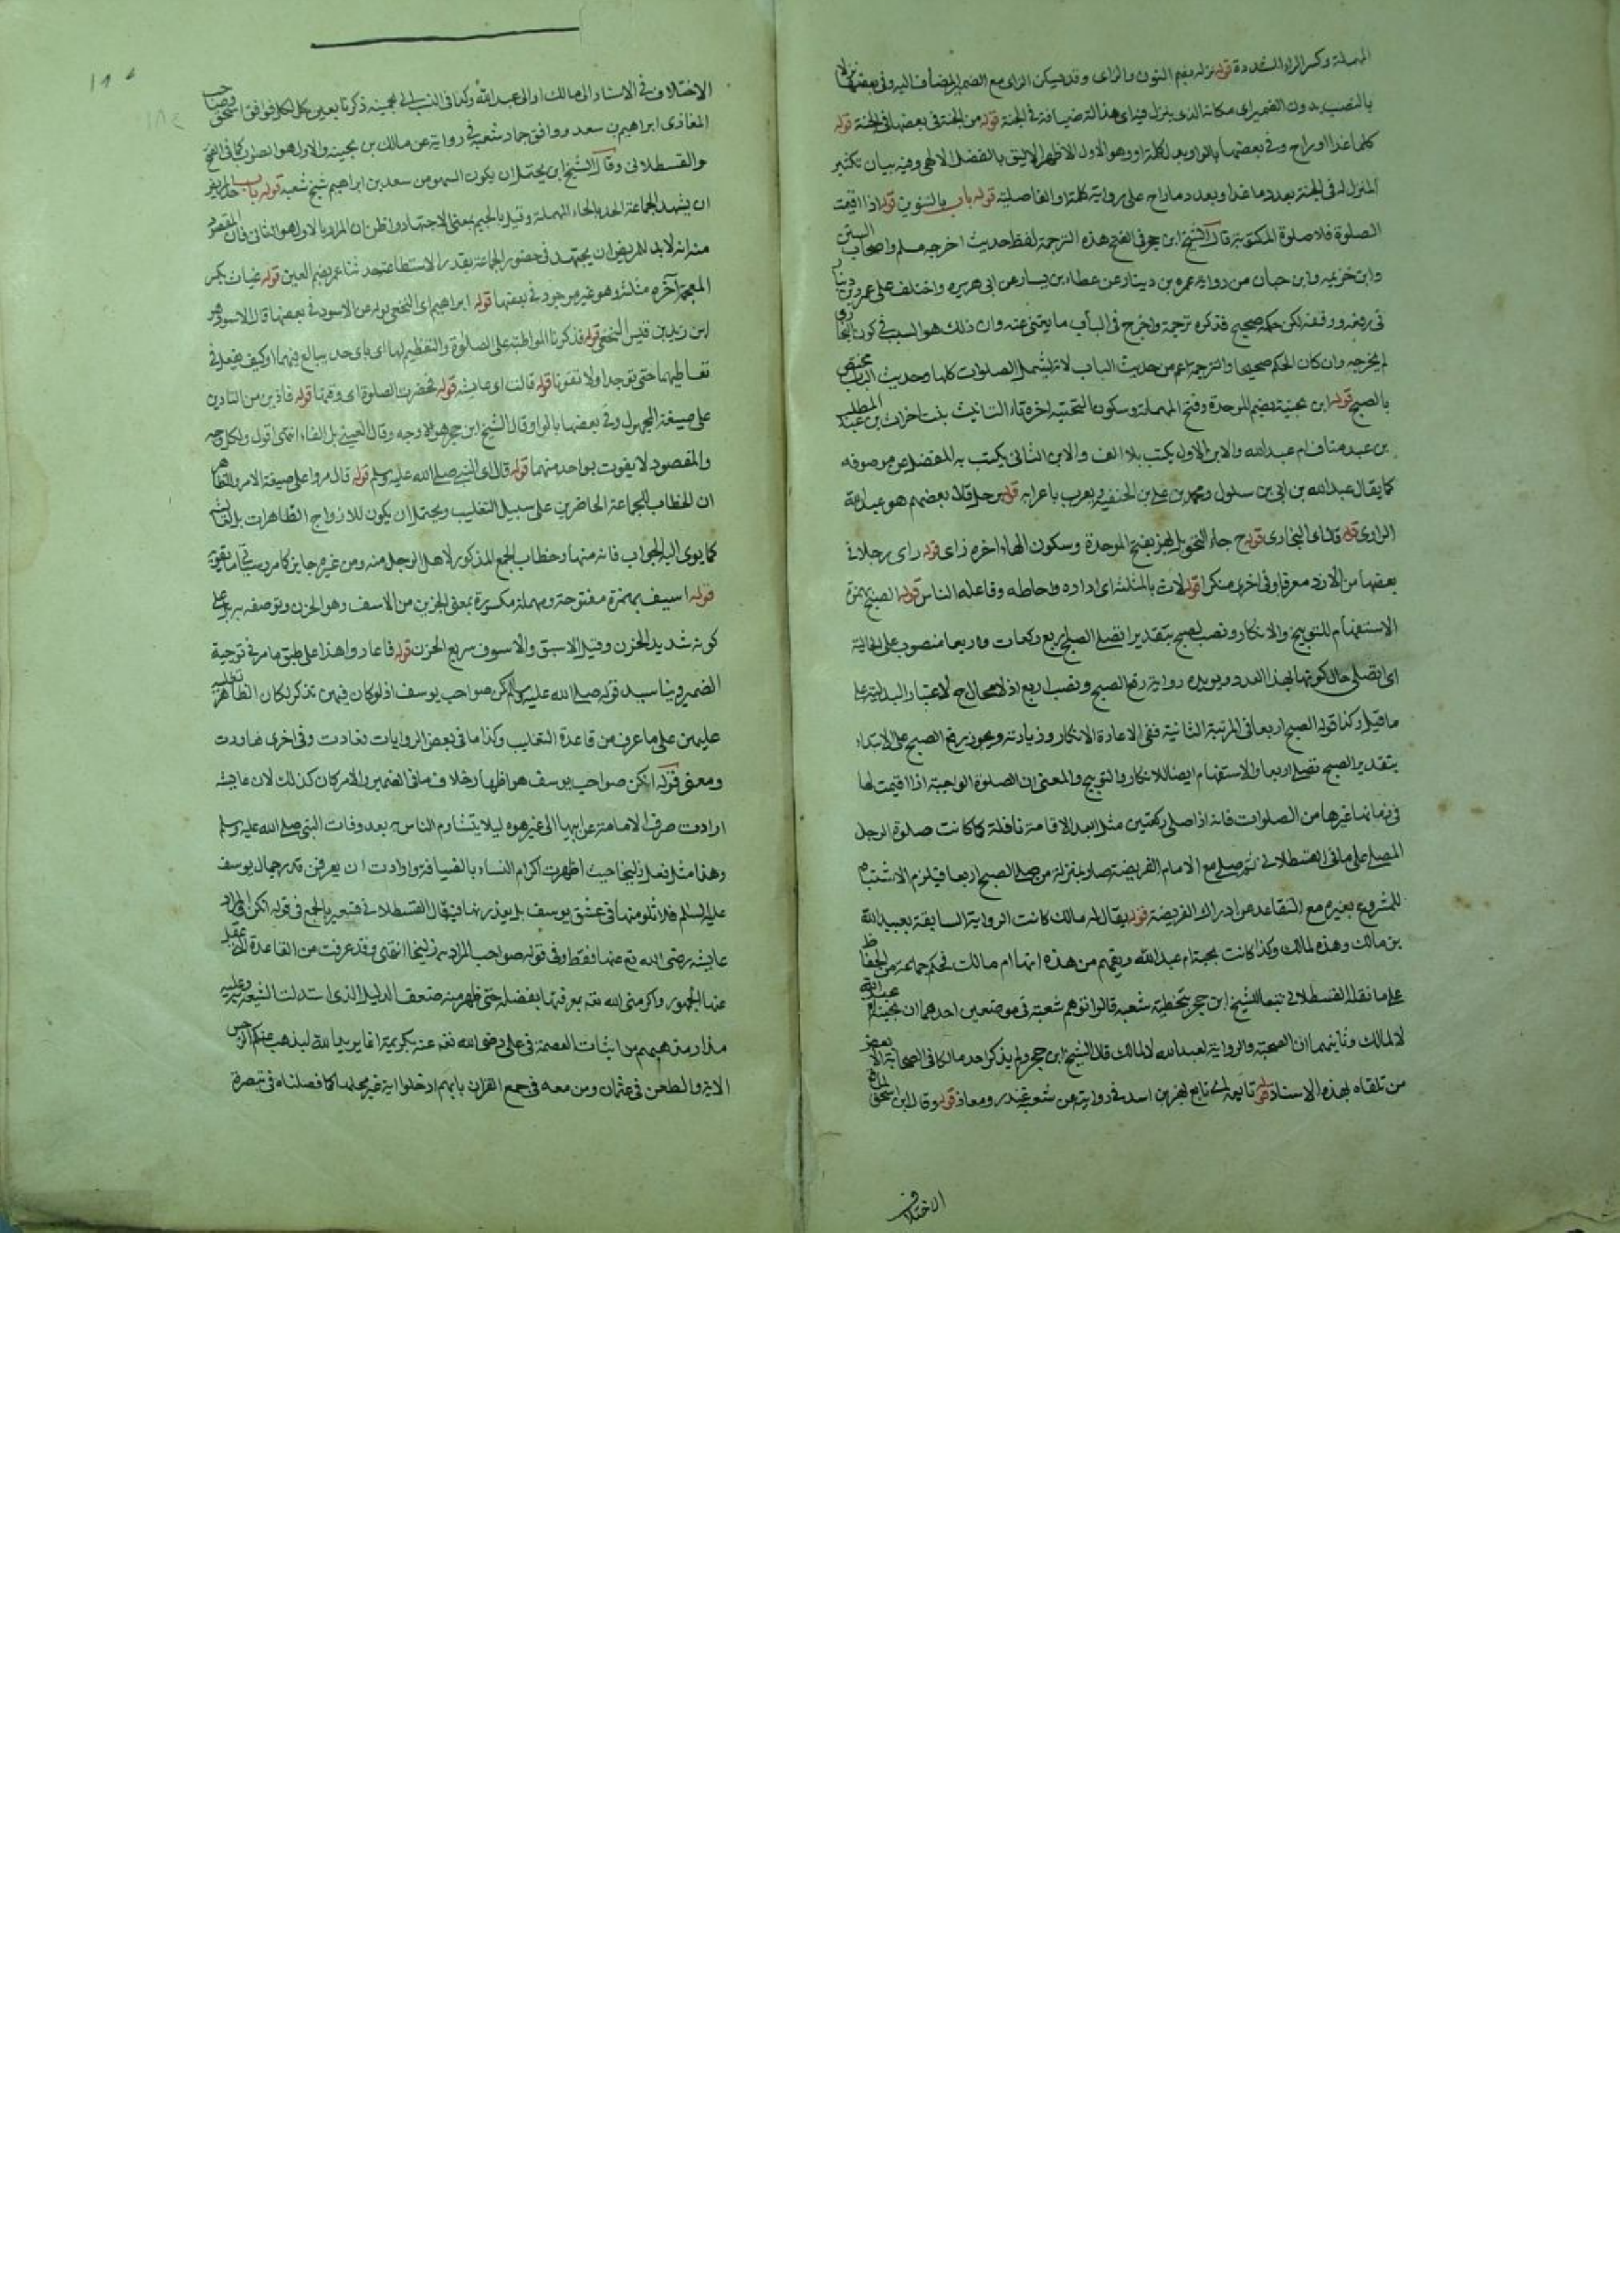 المهملة وكسر الراء المشددة قوله نزله بضم النون والزاى وقد يسكن الزاى مع الضمير المضاف اليه وفى بعضها نزلا
بالنصب بدون الضمير اى مكانا الذى ينزل فيه اى هذا له ضيافة فى الجنة قوله من الجنة فى بعضها فى الجنة قوله
كلما غدا او راح وفى بعضها بالواو بدل كلمة او وهو الاول الاظهر الاليق بالفضل الالهى وفيه بيان تكثير
المنزل له فى الجنة بعدد ما غدا وبعدد ما راح على رواية كلمة او الفاصلة قوله باب بالتنوين قوله اذا اقيمت
الصلوة فلا صلوة الا المكتوبة قال الشيخ ابن حجر فى الفتح هذه الترجمة لفظ حديث اخرجه مسلم واصحاب السنن
وابن خزيمه وابن حبان من رواية عمرو بن دينار عن عطاء بن يسار عن ابى هريره واختلف على عمرو بن دينار
فى رفعه ووقفه لكن حكمه صحيح فذكره ترجمة واخرج فى الباب ما يغنى عنه وان ذلك هو السبب فى كون البخارى
لم يخرجه وان كان الحكم صحيحا والترجمة اعم من حديث الباب لانه يشمل الصلوات كلها وحديث الباب مختص
بالصبح قوله ابن بحينة بضم الموحدة وفتح المهملة وسكون التحتية اخره تاء التانيث بنت الحارث بن عبد المطلب
بن عبد مناف ام عبد الله والابن الاول يكتب بلا الف والابن الثانى يكتب به للفصل عن موصوفه
كما يقال عبد الله بن ابى بن سلول ومحمد بن على بن الحنفية ويعرب باعرابه قوله رجلا قال بعضهم هو عبد الله
الراوى قوله قال اى البخارى قوله ح جاء التحويل بهز بفتح الموحدة وسكون الهاء اخره زاى قوله راى رجلا فى
بعضها من الازد معرفا وفى اخرى منكرا قوله لاث بالمثلثة اى اداره واحاطه وفاعله الناس قوله الصبح بهمزة
الاستفهام للتوبيخ والانكار ونصب الصبح بتقدير اتصلى الصبح اربع ركعات واربعا منصوب على الحالية
اى اتصلى حال كونها بهذا العدد ويويده رواية رفع الصبح ونصب اربع اذ لا مجال ح لاعتبار البدلية على
ما قيل وكذا قوله الصبح اربعا فى المرتبة الثانية ففى الاعادة الانكار وزيادته ويجوز رفع الصبح على الابتداء
بتقدير الصبح تصلى اربعا والاستفهام ايضا للانكار والتوبيخ والمعنى ان الصلوة الواجبة اذا اقيمت لها
فى زمانها غيرها من الصلوات فانه اذا صلى ركعتين مثلا بعد الاقامة نافلة كما كانت صلوة الرجل
المصلى على ما فى القسطلانى ثم صلى مع الامام الفريضة صار بمنزلة من صلى الصبح اربعا فيلزم الاشتباه
للمشروع بغيره مع التقاعد عن ادراك الفريضة قوله يقال له مالك كانت الرواية السابقة بعبد الله
بن مالك وهذه لمالك وكذا كانت بحينة ام عبد الله ويفهم من هذه انها ام مالك فحكم جماعة من الحفاظ
على ما نقله القسطلانى تبعا للشيخ ابن حجر بتخطية شعبه قالوا توهم شعبة فى موضعين احدهما ان بحينة ام عبد الله
لا لمالك وثانيهما ان الصحبة والرواية لعبد الله لا لمالك قال الشيخ ابن حجر ولم يذكر احد مالكا فى الصحابة الا بعض
من تلقاه بهذه الاسناد قوله تابعه اى تابع بهز بن اسد فى روايته عن شعبه غندر ومعاذ قوله وقال ابن اسحق
الاختلاف
الاختلاف فى الاسناد الى مالك او الى عبد الله وكذا فى النسب الى بحينه ذكرتا بعين كل لكل فوافق اسحق وصاحب
المغازى ابراهيم بن سعد ووافق حماد شعبه فى رواية عن مالك بن بحينه والاول هو الصواب كما فى الفتح
والقسطلانى وقال الشيخ ابن يحتمل ان يكون السهو من سعد بن ابراهيم شيخ شعبه قوله باب حد المريض
ان يشهد الجماعة الحد بالحاء المهملة وقيل بالجيم بمعنى الاجتهاد واظن ان المراد بالاول هو الثانى فان المقصود
منه انه لابد للمريض ان يجتهد فى حضور الجماعة بقدر الاستطاعة حدثنا عمر بضم العين قوله غياث بكسر
المعجمة آخره مثلثة وهو غير موجود فى بعضها قوله ابراهيم اى النخعى قوله عن الاسود فى بعضها قال الاسود هو
ابن زيد بن قيس النخعى قوله فذكرنا المواظبة على الصلوة والتعظيم لها اى باى حد يبالغ فيهما او كيف يفعل فى
تعاطيهما حتى توجدا ولا تفوتا قوله قالت اى عايشه قوله فحضرت الصلوة اى وقتها قوله فاذن من التاذين
على صيغة المجهول وفى بعضها بالواو قال الشيخ ابن حجر هو الاوجه وقال العينى بل الفاء انتهى اقول ولكل وجه
والمقصود لا يفوت بواحد منهما قوله قال اى النبى صلى الله عليه وسلم قوله قال مروا على صيغة الامر والظاهر
ان الخطاب للجماعة الحاضرين على سبيل التغليب ويحتمل ان يكون للازواج الطاهرات بل لعايشه
كما يومى اليه الجواب فانه منها وخطاب الجمع المذكور لاهل الرجل منه ومن غيره جايز كما مر وسياتى ما يقويه
قوله اسيف بهمزة مفتوحة ومهملة مكسورة بمعنى الحزين من الاسف وهو الحزن وتوصفه به يدل على
كونه شديد الحزن وقيل الاسيف والاسوف سريع الحزن قوله فاعاد واهذا على طبق ما مر فى توجيه
الضمير ويناسبه قوله صلى الله عليه وسلم انكن صواحب يوسف اذ لو كان فيهن مذكر لكان الظاهر تغليبه
عليهن على ما عرف من قاعدة التغليب وكذا ما فى بعض الروايات فعادت وفى اخرى فعاودت
ومعنى قوله انكن صواحب يوسف هو اظهار خلاف ما فى الضمير والامر كان كذلك لان عايشه
ارادت صرف الامامة عن ابيها الى غيره ليلا يتشاءم الناس به بعد وفات النبى صلى الله عليه وسلم
وهذا مثل فعل زليخا حيث اظهرت اكرام النساء بالضيافة وارادت ان يعرفن قدر جمال يوسف
عليه السلم فلا تلومنها فى عشق يوسف بل يعذرنها فيه قال القسطلانى فتعبير بالجمع فى قوله انكن والمراد
عايشه رضى الله تع عنها فقط وفى قوله صواحب المراد به زليخا انتهى وقد عرفت من القاعدة
عنها الجمهور واكرمنى الله تعه بمعرفتها بفضله حتى ظهر منه ضعف الدليل الذى استدلت الشيعة وعليه
مدار مذهبهم من اثبات العصمة فى على رضى الله تعه عنه بكريمة انما يريد الله ليذهب عنكم الرجس
الاية والطعن فى عثمان ومن معه فى جمع القران بانهم ادخلوا اية غير محلها كما فصلناه فى تبصرة